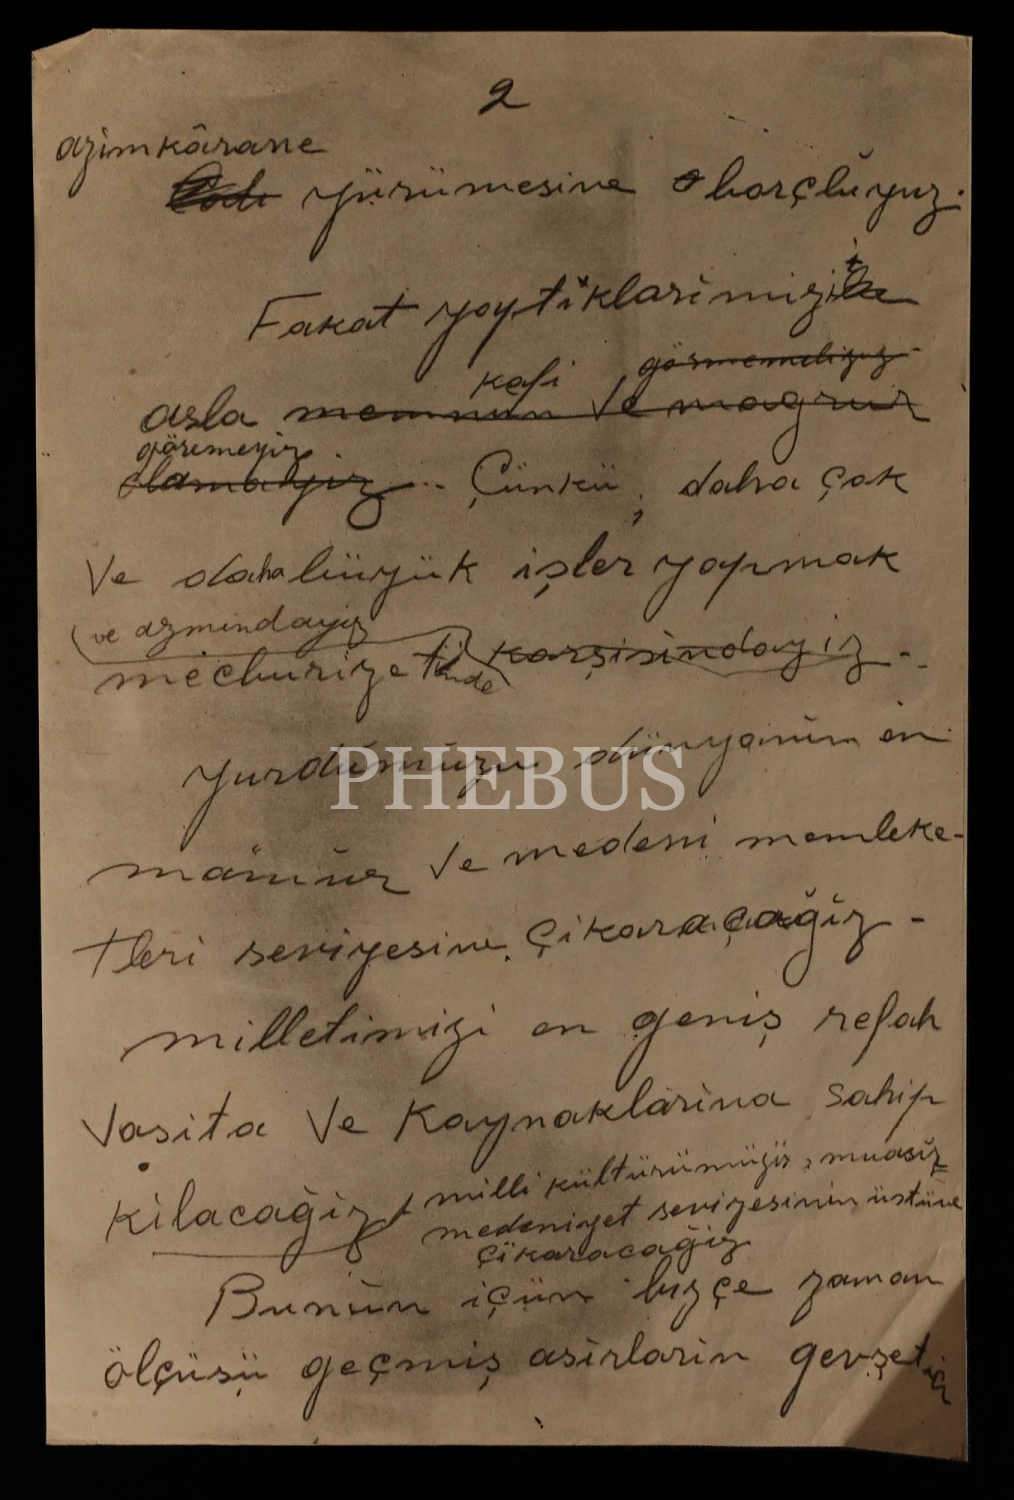 2
azimkârane
yürümesine borçluyuz.
Fakat yaptıklarımızı
kâfi görmemeliyiz
asla memnun ve mağrur
göremeyiz
olamayız. Çünkü, daha çok
ve daha büyük işler yapmak
ve azmindayız
mecburiyetinde karşisindayiz.
PHEBUS
yurdumuzu dünyanın en
mâmur ve medeni memleke-
tleri seviyesine çikaracağız.
milletimizi en geniş refah
vasita ve kaynaklarına sahip
kılacağız milli kültürümüzü, muasır
medeniyet seviyesinin üstüne
çıkaracağız
Bunun için bizçe zaman
ölçüsü geçmiş asirlarin gevşetici